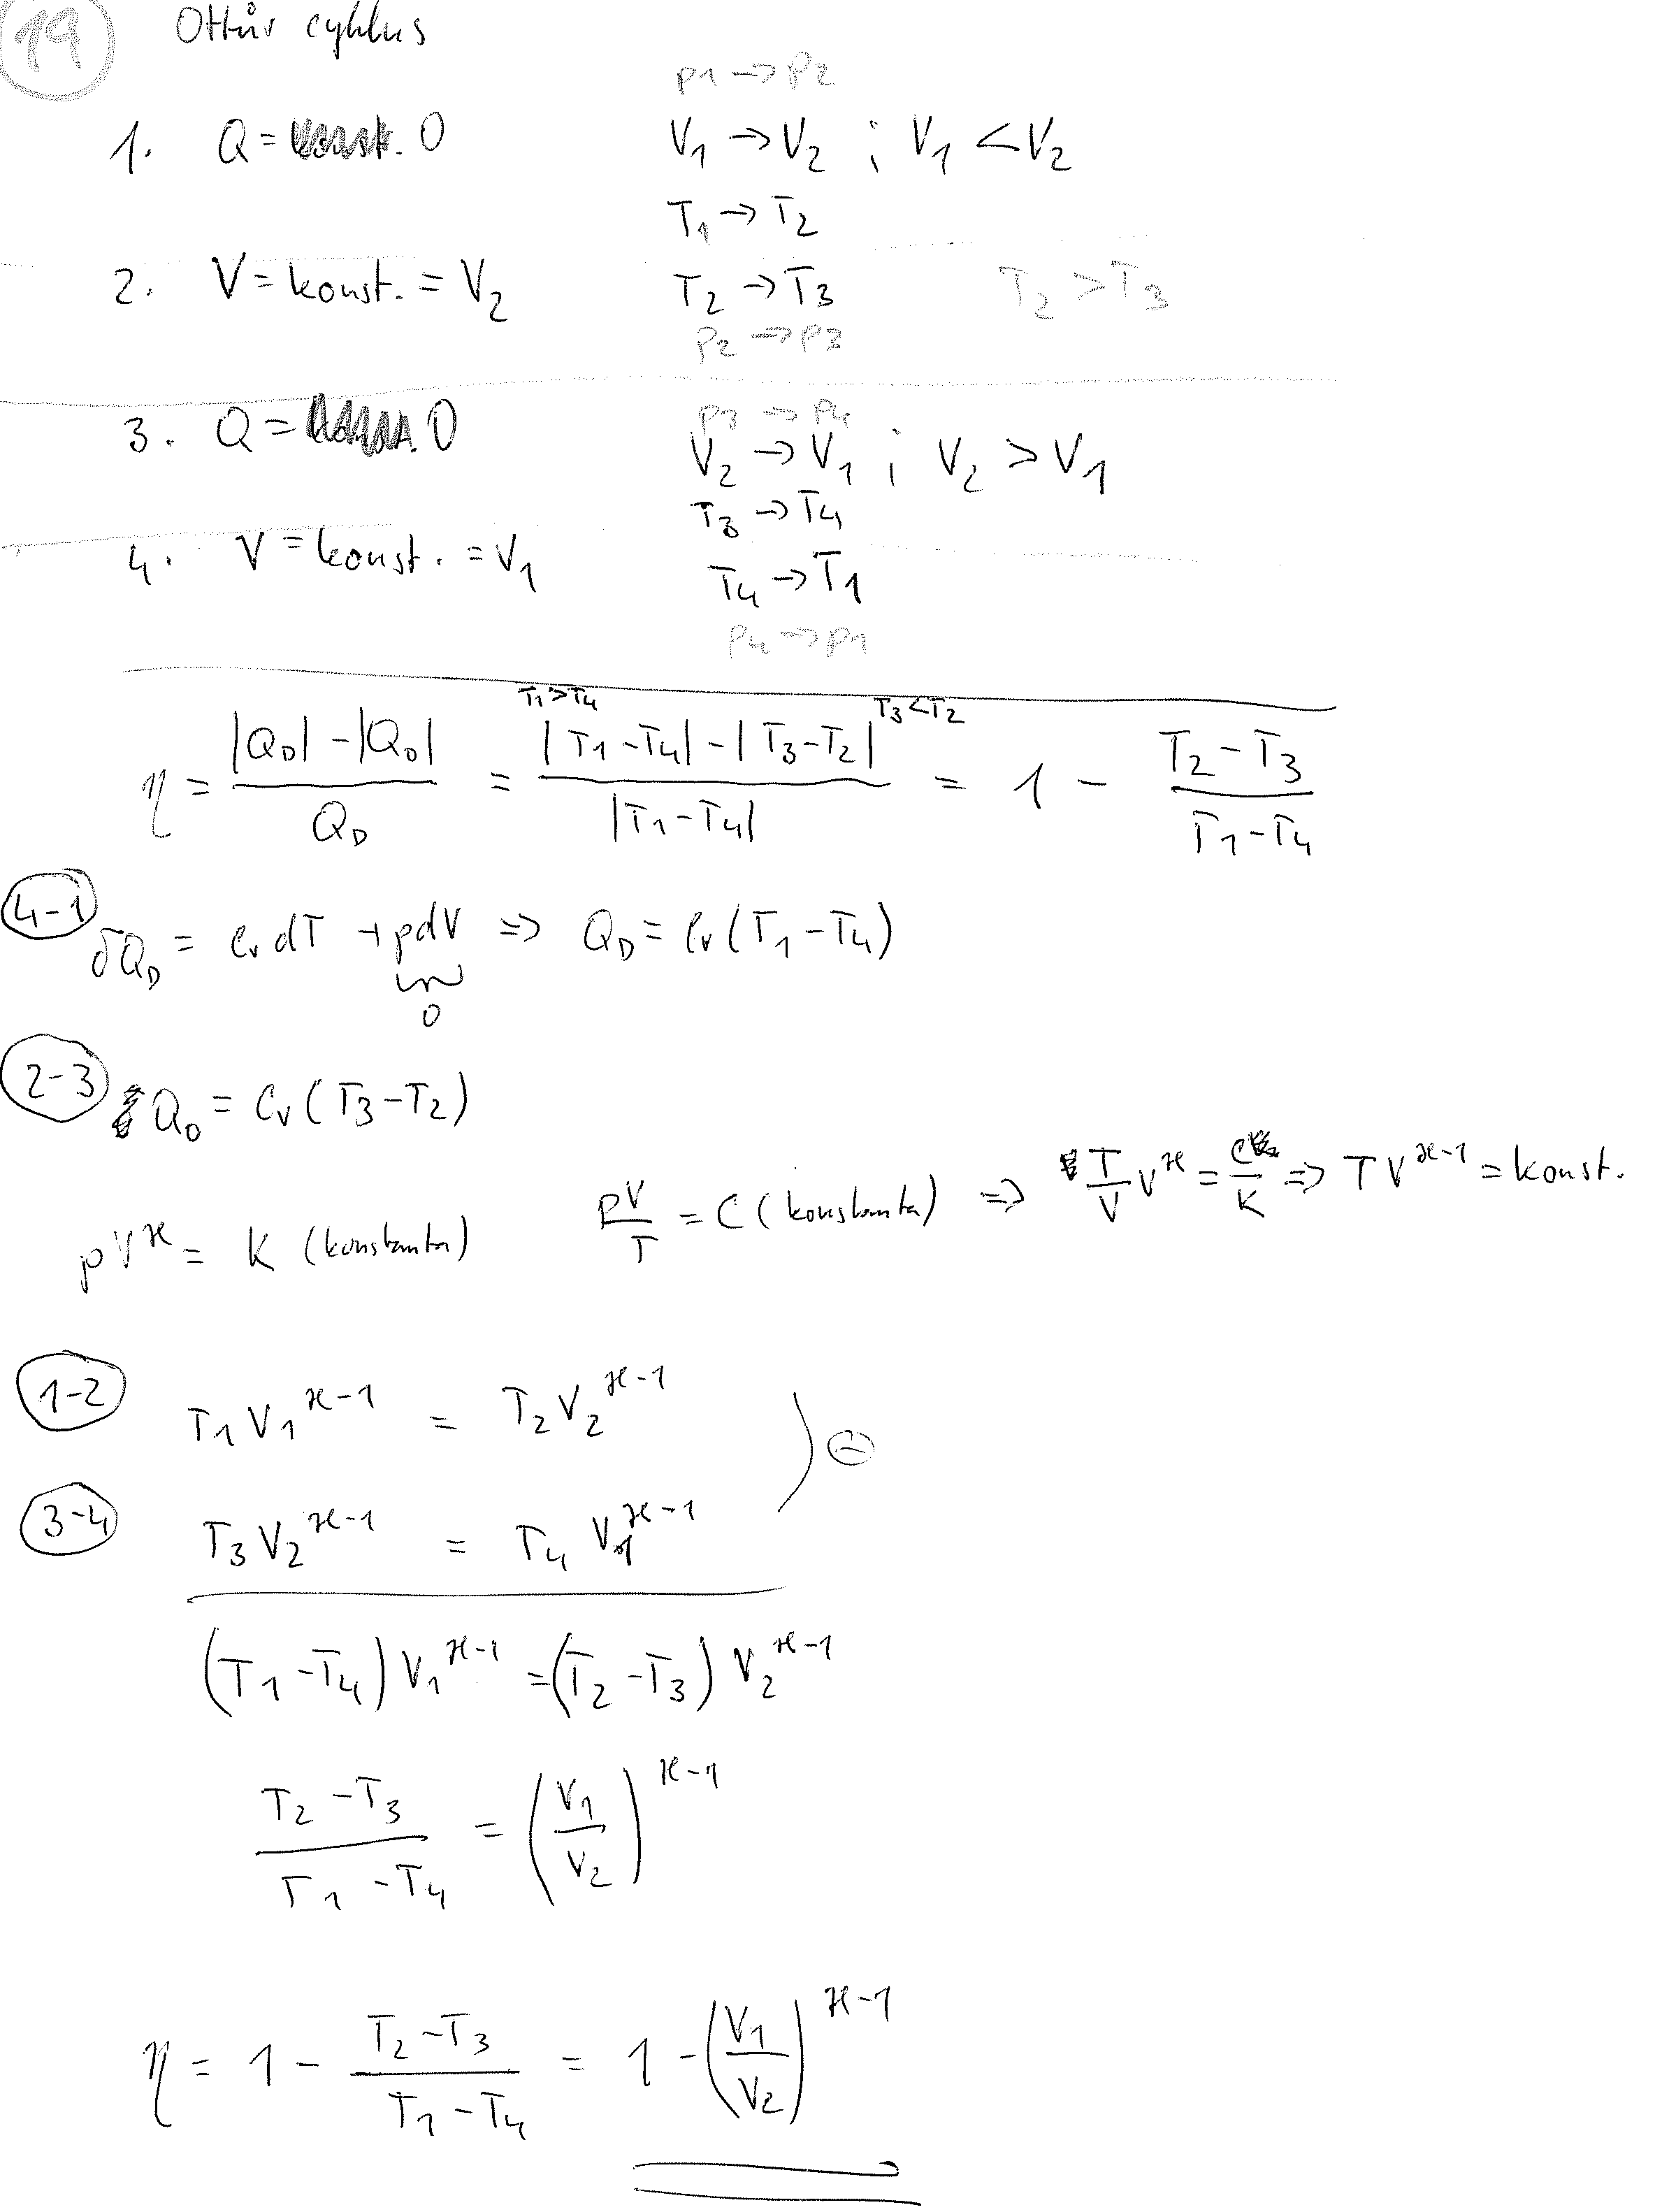 19 Ottův cyklus
p1 → p2
1. Q = konst. 0 V1 → V2 ; V1 < V2
T1 → T2
2. V = konst. = V2 T2 → T3 T2 > T3
p2 → p3
p3 → p4
3. Q = 0 V2 → V1 ; V2 > V1
T3 → T4
4. V = konst. = V1 T4 → T1
p4 → p1
η = (|Q_D| - |Q_O|) / Q_D = (|T1 - T4| - |T3 - T2|) / |T1 - T4| = 1 - (T2 - T3) / (T1 - T4)
T1 > T4 T3 < T2
4-1 δQ_D = C_V dT + pdV ⇒ Q_D = C_V (T1 - T4)
0
2-3 Q_O = C_V (T3 - T2)
pV^ϰ = K (konstanta) pV/T = C (konstanta) ⇒ T/V V^ϰ = C/K ⇒ TV^(ϰ-1) = konst.
1-2 T1 V1^(ϰ-1) = T2 V2^(ϰ-1)
⊖
3-4 T3 V2^(ϰ-1) = T4 V1^(ϰ-1)
(T1 - T4) V1^(ϰ-1) = (T2 - T3) V2^(ϰ-1)
(T2 - T3) / (T1 - T4) = (V1 / V2)^(ϰ-1)
η = 1 - (T2 - T3) / (T1 - T4) = 1 - (V1 / V2)^(ϰ-1)